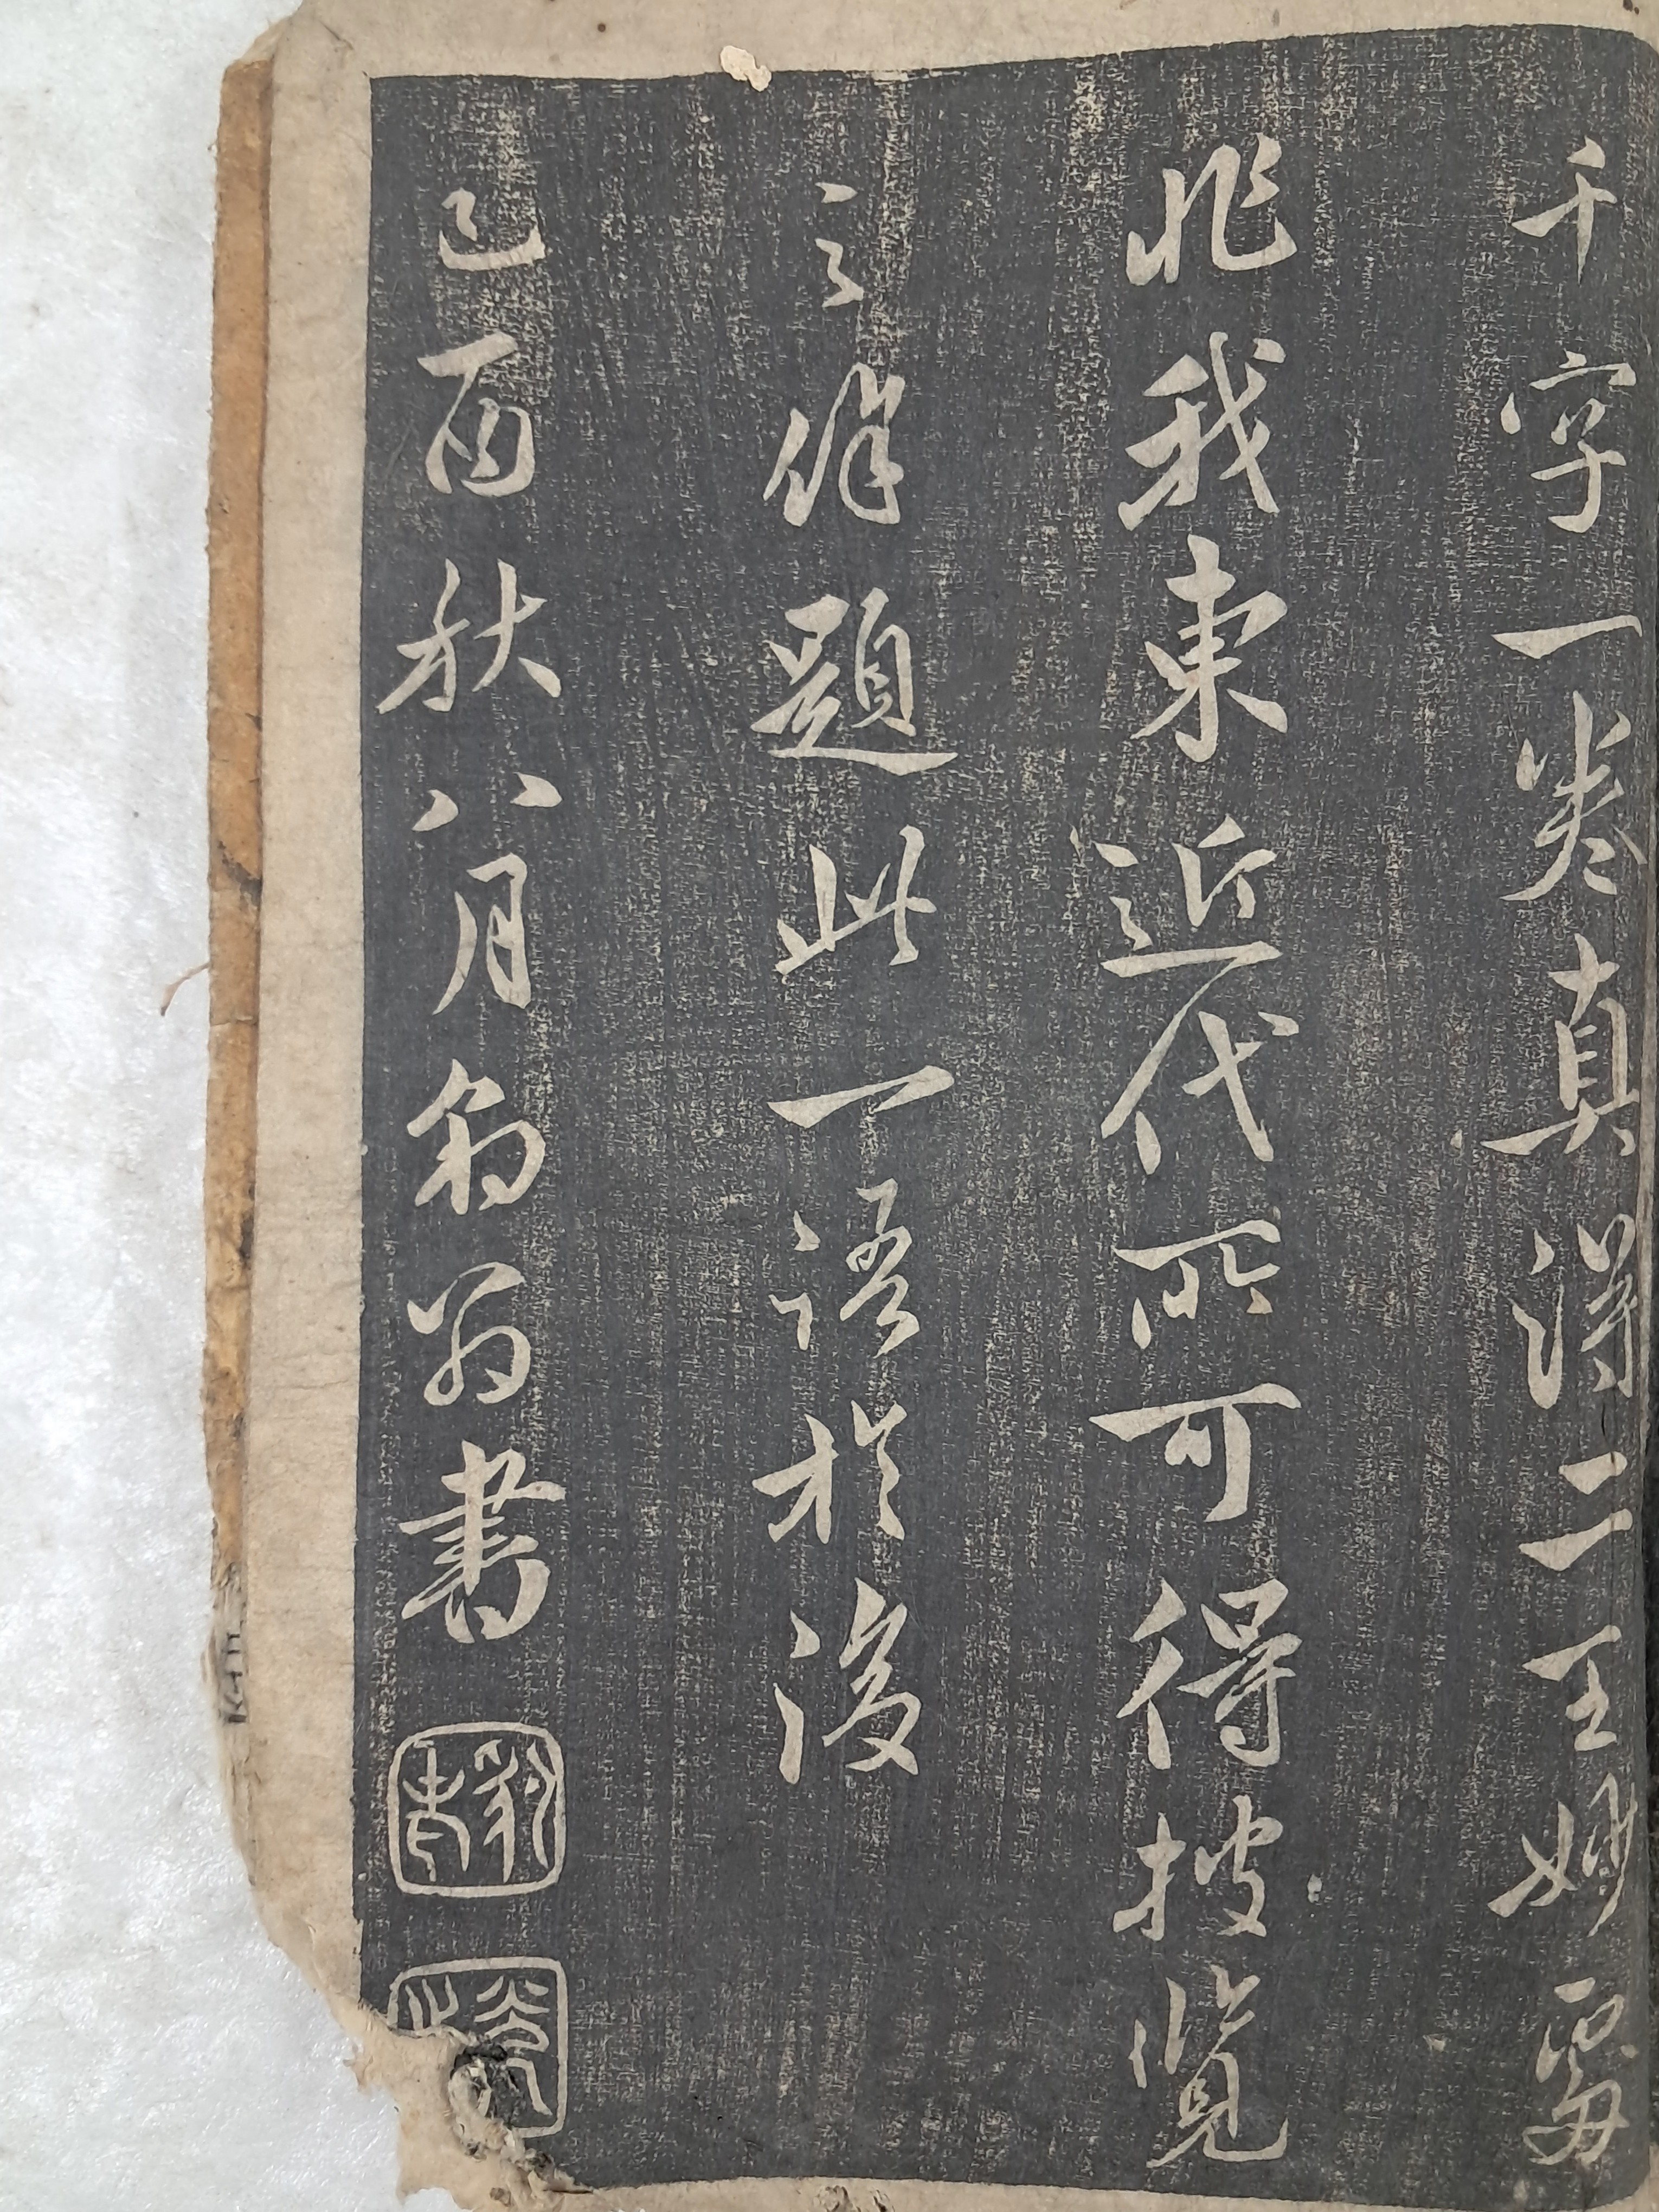 千字一卷真得二王妙處
非我東近代所可得披覽
之餘題此一語於後
己酉秋八月豹翁書